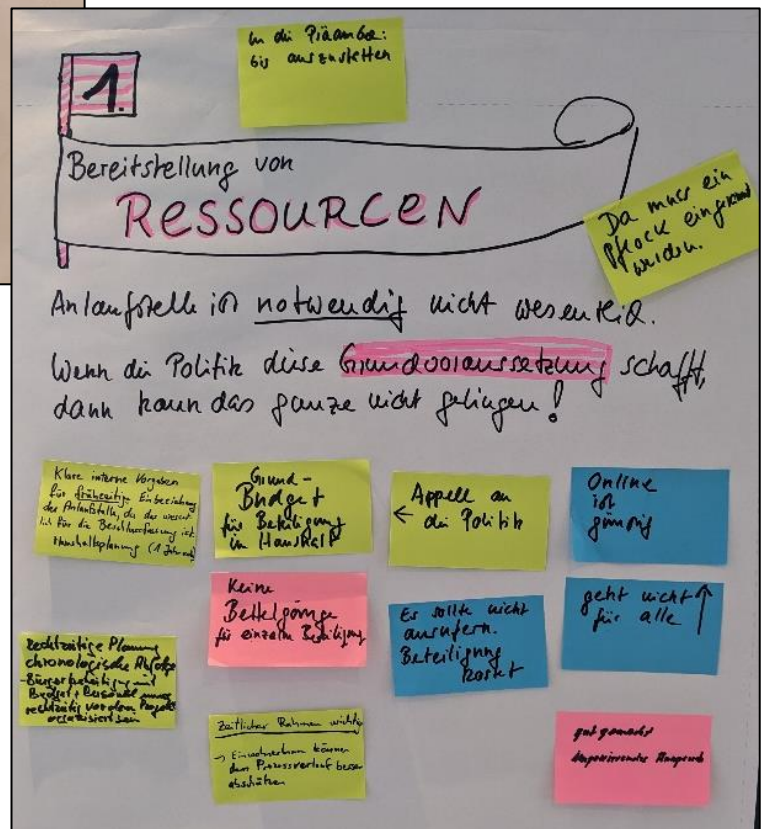 In die Präambel:
bis auszustatten
1.
Bereitstellung von
RESSOURCEN
Da muss ein
Pflock eingerammt
werden.
Anlaufstelle ist notwendig nicht wesentlich.
Wenn die Politik diese Grundvoraussetzung schafft,
dann kann das ganze nicht gelingen!
Klare interne Vorgaben
für frühzeitige Einbeziehung
der Anlaufstelle, da das
für die Beschlussfassung ist.
Haushaltsplanung (1 Jahr
Grund-
Budget
für Beteiligung
im Haushalt
← Appell an
die Politik
Online
ist
günstig
Keine
Bettelgänge
für einzelne Beteiligung
Es sollte nicht
ausufern.
Beteiligung
kostet
geht nicht ↑
für alle
Rechtzeitige Planung
chronologische Abfolge
-Bürgerbeteiligung mit
Budget + Personal muss
rechtzeitig vor dem Projekt
organisiert sein
Zeitlicher Rahmen wichtig
→ Einwohner können
den Prozessverlauf besser
abschätzen
gut gemacht